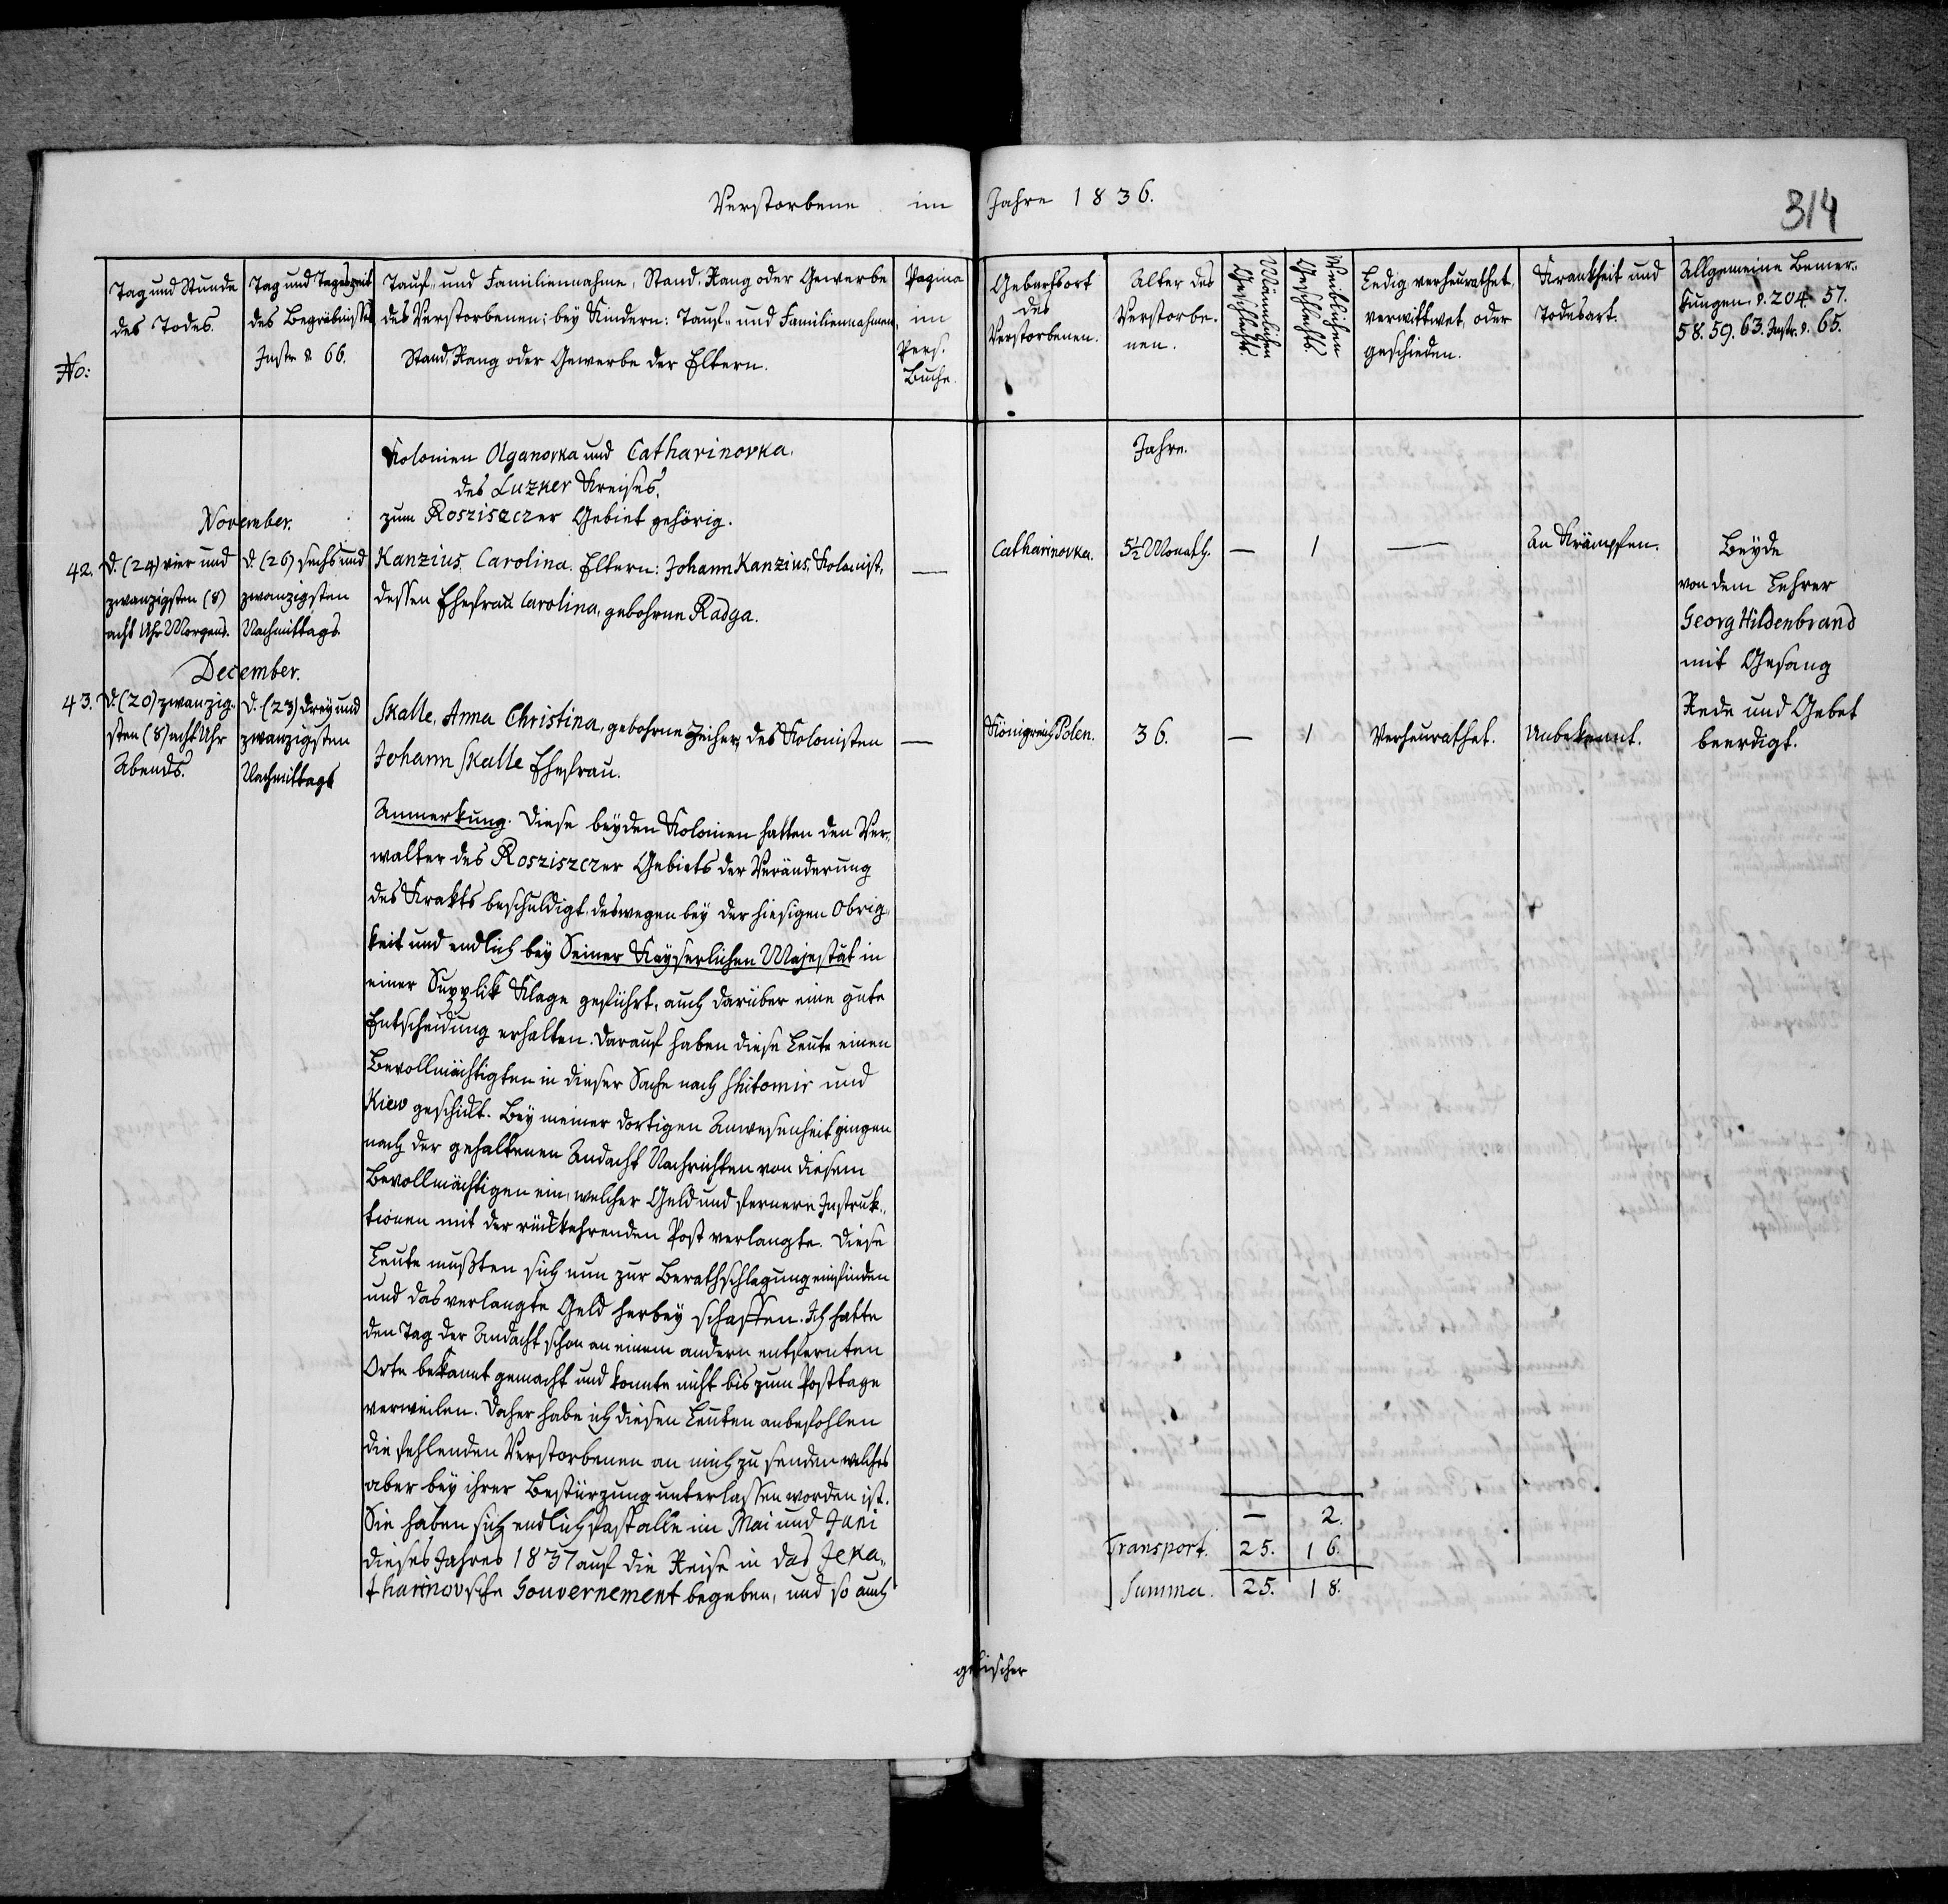 Verstorbene im Jahre 1836.
314
No:
Tag und Stunde
des Todes.
Tag und Tageszeit
des Begräbnisses
Instr. §. 66.
Tauf- und Familiennahme, Stand, Rang oder Gewerbe
des Verstorbenen; bey Kindern: Tauf- und Familiennahmen,
Stand, Rang oder Gewerbe der Eltern.
Pagina
im
Pers.
Buche.
Geburtsort
des
Verstorbenen.
Alter des
Verstorbe-
nen.
Männlichen
Geschlechts.
Weiblichen
Geschlechts.
Ledig verheurathet,
verwittwet, oder
geschieden.
Krankheit und
Todesart.
Allgemeine Bemer-
kungen. §. 204. 57.
58. 59. 63. Instr. §. 65.
Kolonien Olganovka und Catharinovka.
des Luzker Kreises,
zum Rosziszczer Gebiet gehörig.
Jahre.
November.
42.
D. (24) vier und
zwanzigsten (8)
acht Uhr Morgens.
D. (26) sechs und
zwanzigsten
Nachmittags.
Kanzius, Carolina. Eltern: Johann Kanzius, Kolonist,
dessen Ehefrau Carolina, gebohrne Radga.
—
Catharinovka.
5½ Monath.
—
1
—
An Krämpfen.
Beyde
von dem Lehrer
Georg Hildenbrand
mit Gesang
Rede und Gebet
beerdigt.
December.
43.
D. (20) zwanzig-
sten (8) acht Uhr
Abends.
D. (23) drey und
zwanzigsten
Nachmittags
Skalle, Anna Christina, gebohrne Zeiher, des Kolonisten
Johann Skalle Ehefrau.
—
Königreich Polen.
36.
—
1
Verheurathet.
Unbekannt.
Anmerkung. Diese beyden Kolonien hatten den Ver-
walter des Rosziszczer Gebiets der Veränderung
des Krakts beschuldigt, deswegen bey der hiesigen Obrig-
keit und endlich bey Seiner Kayserlichen Majestät in
einer Supplik Klage geführt, auch darüber eine gute
Entscheidung erhalten. Darauf haben diese Leute einen
Bevollmächtigten in dieser Sache nach Shitomir und
Kiew geschickt. Bey meiner dortigen Anwesenheit gingen
nach der gehaltenen Andacht Nachrichten von diesem
Bevollmächtigen ein, welcher Geld und fernere Instruk-
tionen mit der rückkehrenden Post verlangte. Diese
Leute mußten sich nun zur Berathschlagung einfinden
und das verlangte Geld herbey schaffen. Ich hatte
den Tag der Andacht schon an einem andern entfernten
Orte bekannt gemacht und konnte nicht bis zum Posttage
verweilen. Daher habe ich diesen Leuten anbefohlen
die fehlenden Verstorbenen an mich zu senden, welches
aber bey ihrer Bestürzung unterlassen worden ist.
Sie haben sich endlich fast alle im Mai und Juni
dieses Jahres 1837 auf die Reise in das Jeka-
tharinovsche Gouvernement begeben, und so auch
— 2.
Transport. 25. 16.
Summa. 25. 18.